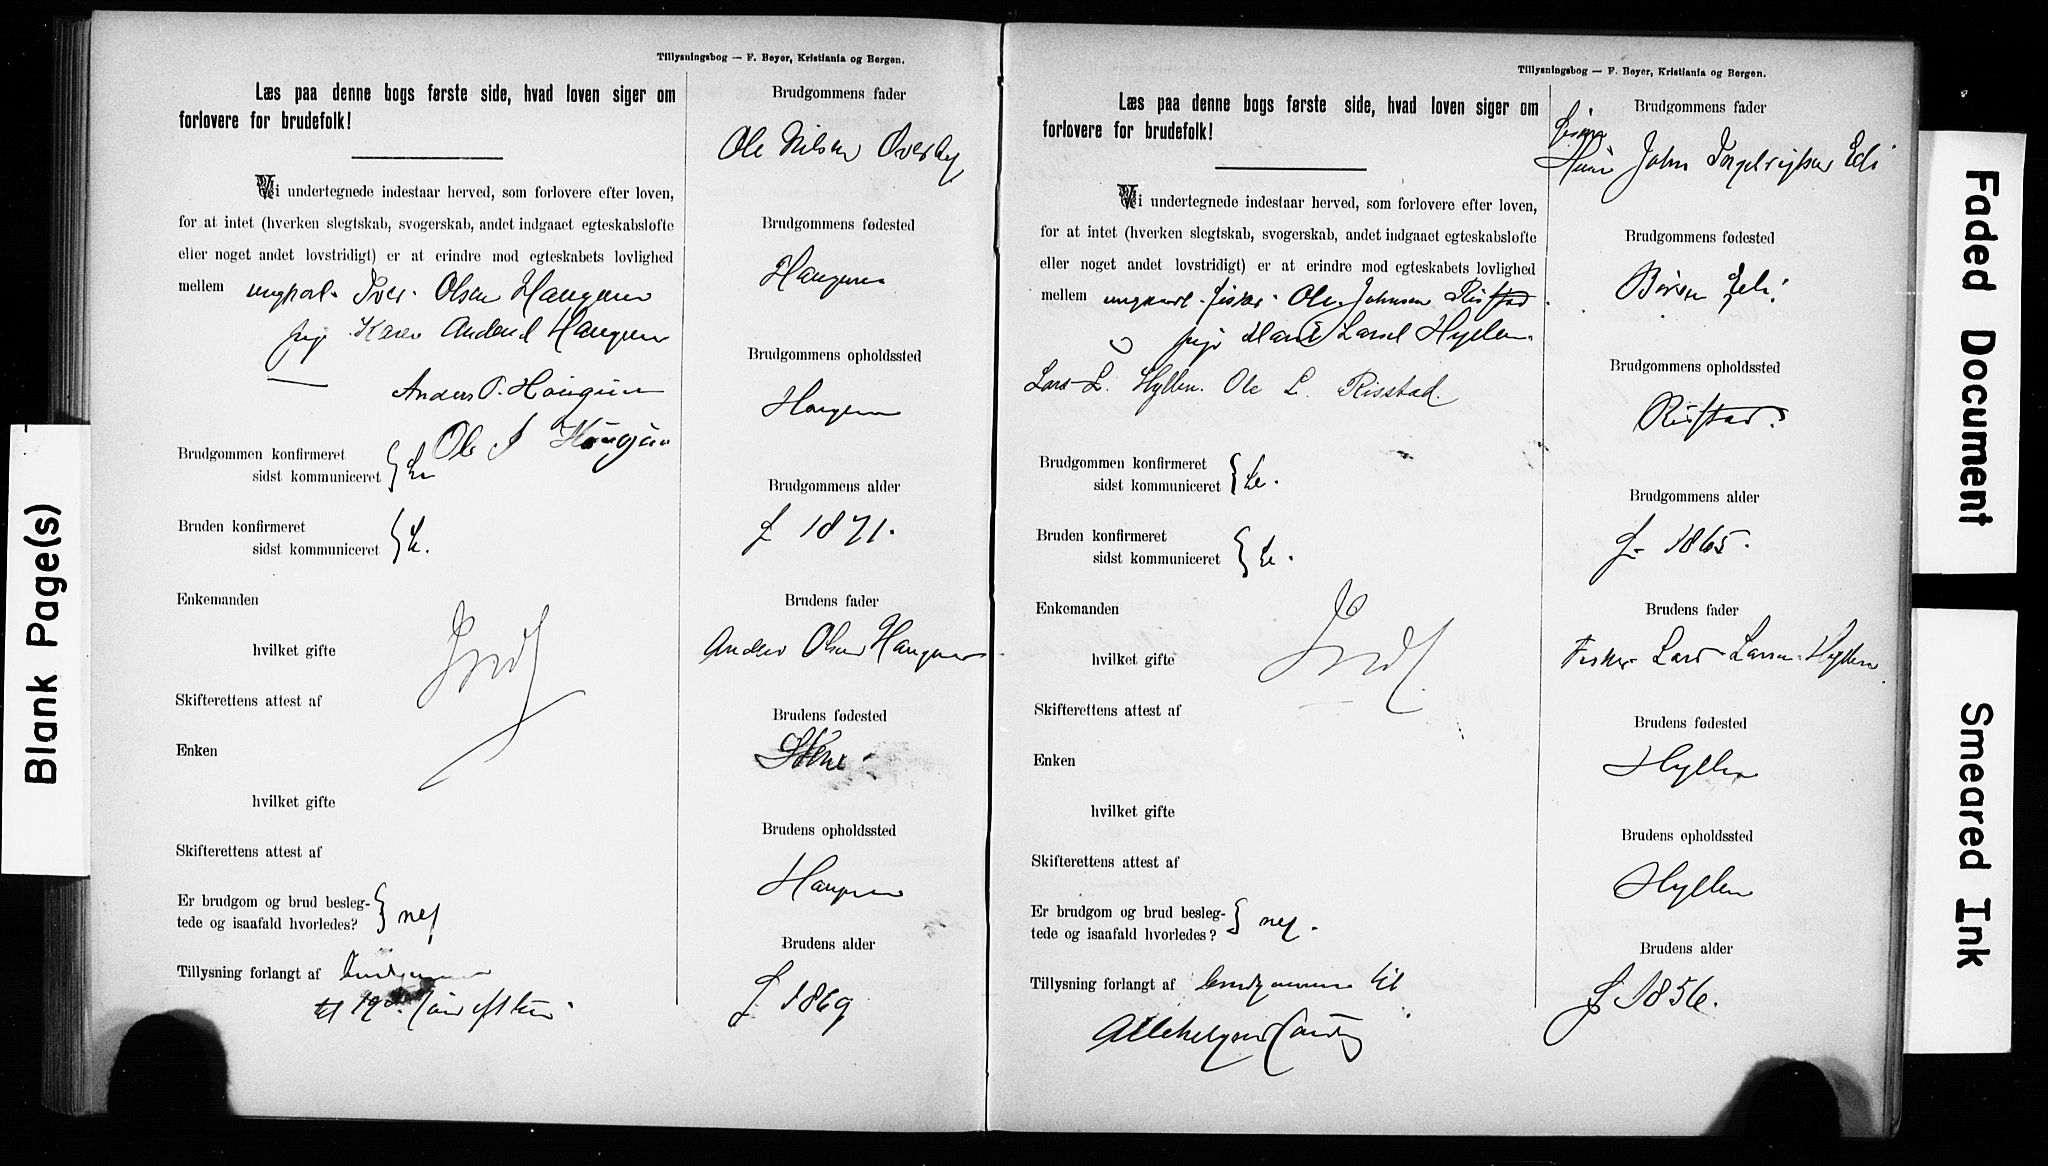 Tillysningsbog — F. Beyer, Kristiania og Bergen.
Læs paa denne bogs første side, hvad loven siger om
forlovere for brudefolk!
Vi undertegnede indestaar herved, som forlovere efter loven,
for at intet (hverken slegtskab, svogerskab, andet indgaaet egteskabsløfte
eller noget andet lovstridigt) er at erindre mod egteskabets lovlighed
mellem ungkarl. Iver Olsen Haugum
pige Karen Andersd Haugum
Anders O. Haugum
Ole Haugum
Brudgommen konfirmeret
sidst kommuniceret
Bruden konfirmeret
sidst kommuniceret
Enkemanden
hvilket gifte
Indf
Skifterettens attest af
Enken
hvilket gifte
Skifterettens attest af
Er brudgom og brud besleg-
tede og isaafald hvorledes? } nej
Tillysning forlangt af Brudgommen
Brudgommens fader
Ole Nilsen Overby
Brudgommens fødested
Haugum
Brudgommens opholdssted
Haugum
Brudgommens alder
f 1871.
Brudens fader
Anders Olsen Haugum
Brudens fødested
Brudens opholdssted
Haugum
Brudens alder
f. 1869
Tillysningsbog — F. Beyer, Kristiania og Bergen.
Læs paa denne bogs første side, hvad loven siger om
forlovere for brudefolk!
Vi undertegnede indestaar herved, som forlovere efter loven,
for at intet (hverken slegtskab, svogerskab, andet indgaaet egteskabsløfte
eller noget andet lovstridigt) er at erindre mod egteskabets lovlighed
mellem ungkarl. fisker Ole Johnsen Risstad
pige Larsd Hyllen.
Lars L. Hyllen. Ole L. Risstad.
Brudgommen konfirmeret
sidst kommuniceret
Bruden konfirmeret
sidst kommuniceret
Enkemanden
hvilket gifte
Indf.
Skifterettens attest af
Enken
hvilket gifte
Skifterettens attest af
Er brudgom og brud besleg-
tede og isaafald hvorledes? } nej.
Tillysning forlangt af brudgommen til
Allehelgens
Brudgommens fader
John
Brudgommens fødested
Børsen
Brudgommens opholdssted
Risstad.
Brudgommens alder
f. 1865.
Brudens fader
Fisker Lars Larsen Hyllen
Brudens fødested
Hyllen
Brudens opholdssted
Hyllen
Brudens alder
f 1856.
Blank Page(s)
Faded Document
Smeared Ink